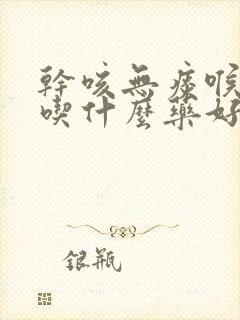 幹咳無痰喉
喫什麼藥好
銀瓶